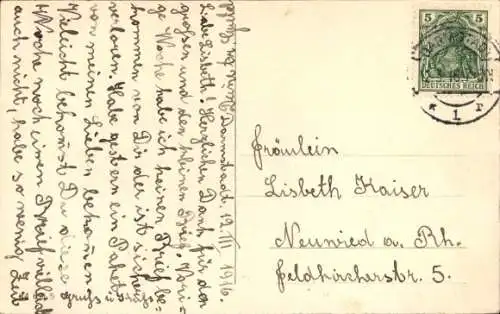 Darmstadt 19. III. 1916.
Liebe Lisbeth! Herzlichen Dank für den
grossen und den kleinen Brief. Vori-
ge Woche habe ich keinen Brief be-
kommen von Dir der ist sicher
verloren. Habe gestern ein Paket
von meinen Lieben bekommen
Vielicht bekomst Du diese
Woche noch einen Brief vielleicht
auch nicht, habe so wenig Zeit
Gruss u. Kuss
Fräulein
Lisbeth Kaiser
Neuwied a. Rh.
Feldkircherstr. 5.
5 5
DEUTSCHES REICH
* 1 r